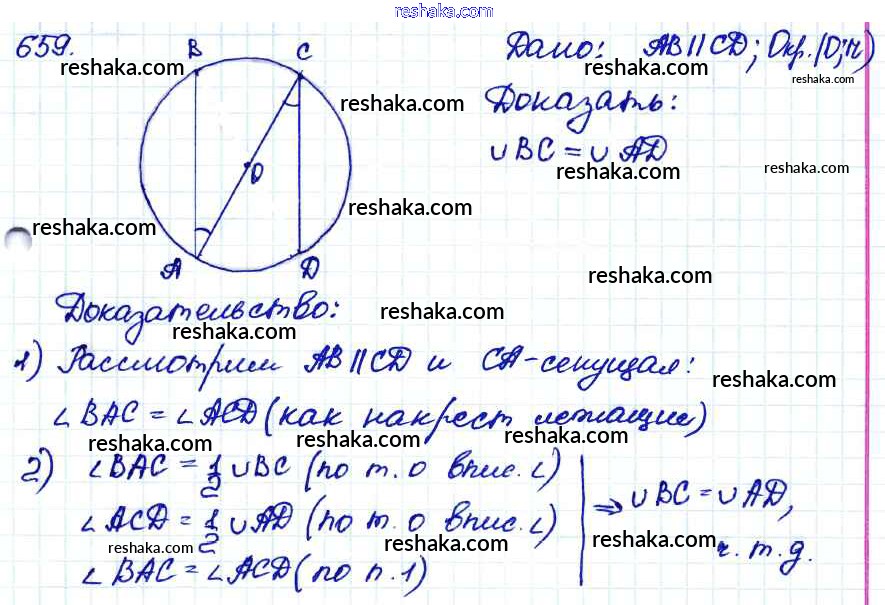 reshaka.com
659. B C Дано: AB∥CD; Окр.(O;r)
reshaka.com reshaka.com reshaka.com
reshaka.com Доказать:
∪BC = ∪AD
O reshaka.com reshaka.com
reshaka.com reshaka.com
A D reshaka.com
Доказательство:
reshaka.com reshaka.com
1) Рассмотрим AB∥CD и CA-секущая:
reshaka.com
∠BAC = ∠ACD (как накрест лежащие)
reshaka.com reshaka.com reshaka.com
2) ∠BAC = 1/2 ∪BC (по т. о впис. ∠)
∠ACD = 1/2 ∪AD (по т. о впис. ∠) ⇒ ∪BC = ∪AD,
reshaka.com reshaka.com reshaka.com ч.т.д.
∠BAC = ∠ACD (по п.1)